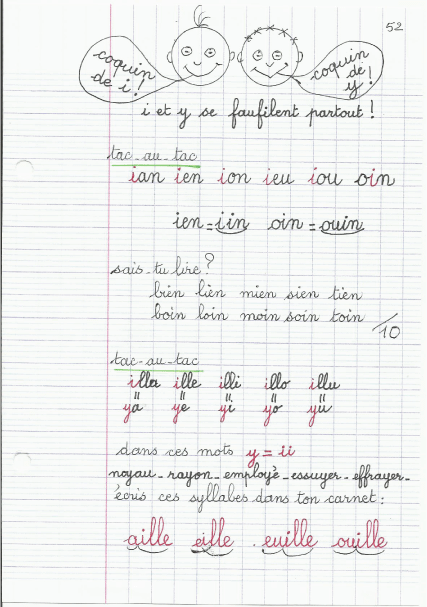 52
coquin
de i!
coquin
de
y!
i et y se faufilent partout!
tac-au-tac
ian ien ion ieu iou oin
ien = iin oin = ouin
sais-tu lire?
bien lien mien sien tien
boin loin moin soin toin
/10
tac-au-tac
illa ille illi illo illu
= = = = =
ya ye yi yo yu
dans ces mots y = ii
noyau - rayon - employé - essuyer - effrayer -
écris ces syllabes dans ton carnet:
aille eille euille ouille